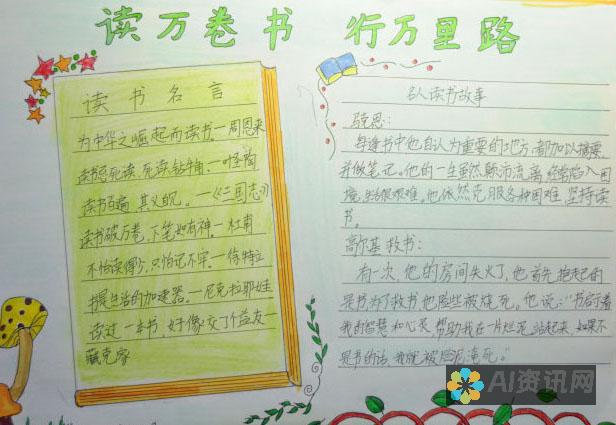 读万卷书 行万里路
读书名言
为中华之崛起而读书—周恩来
读书忌死读,死读钻牛角.—叶圣陶
读书百遍,其义自见.—《三国志》
读书破万卷,下笔如有神.—杜甫
不怕读得少,只怕记不牢.—徐特立
生活的加速器.—尼克拉耶娃
读过一本书,好像交了个益友—
臧克家
名人读书故事
马克思:
他自认为重要的地方,都加以摘要
并做笔记。他的一生虽然颠沛流离,经常陷入困
境,生活很艰难,他依然克服各种困难,坚持读
书。
高尔基救书:
有一次,他的房间失火了,他首先抱起的
是书,为了救书他险些被烧死。他说:"书启示着
我的智慧和心灵,帮助我在一片烂泥站起来,如果不
是书的话,我就被烂泥淹死。"
AI资讯网